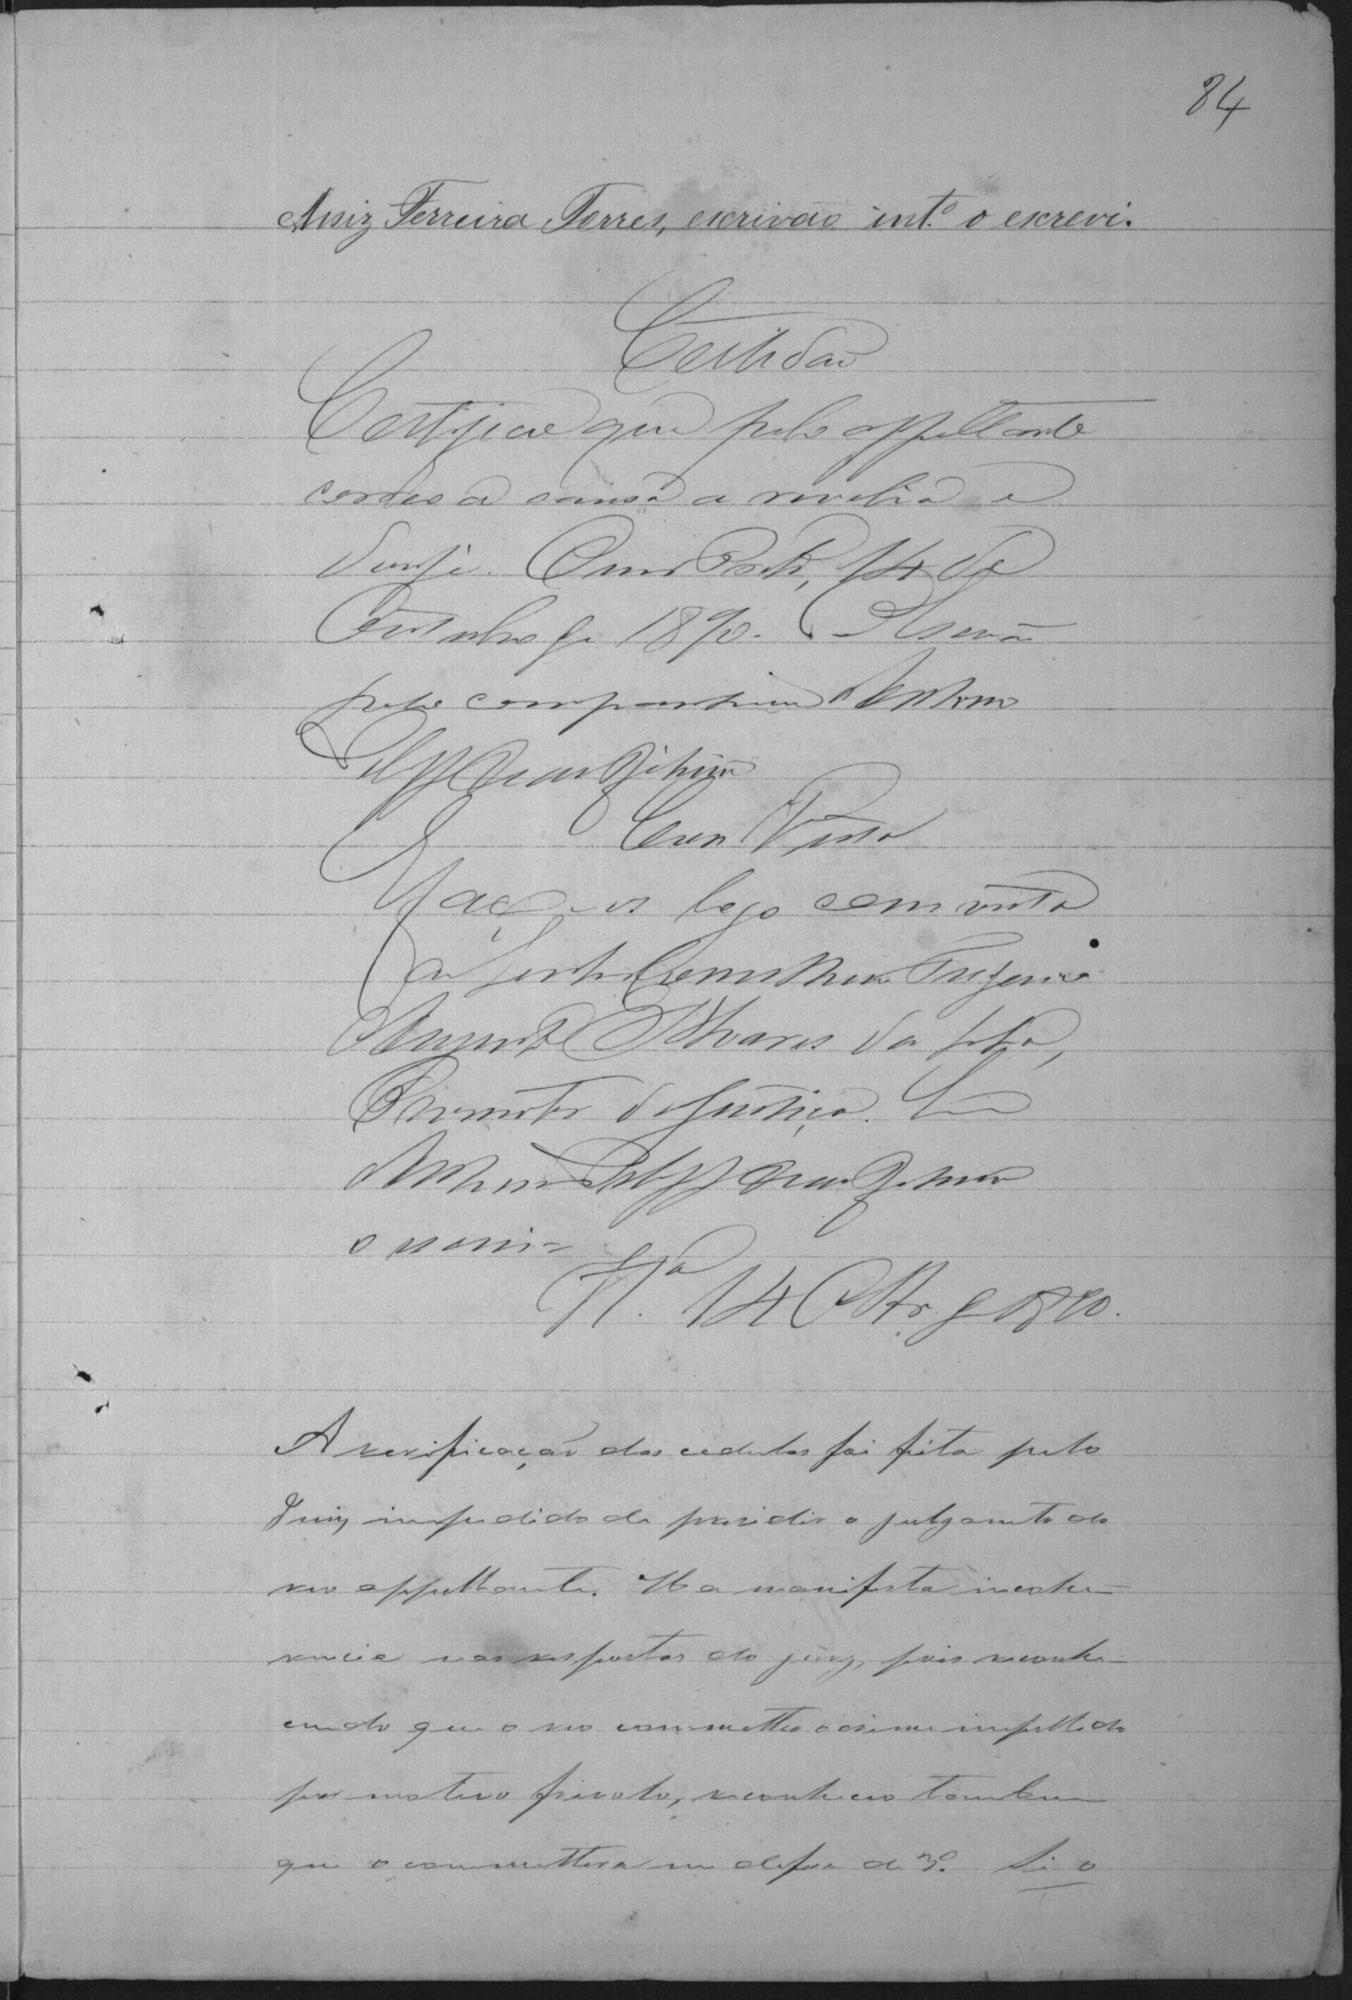 84
Assiz Ferreira Torres, escrivão int.º o escrevi.
Certidão
Certifico que pelo appellante
correo a causa a revelia e
dou fé. Ouro Preto, 14 de
Outubro de 1890. O Escrivão
pelo companheiro Antonio
Com Vista
Faço-os logo com vista
ao Conselheiro
Augusto Alvares da
Promotor da Justiça. Eu
Antonio
o escrevi =
V.ta 14 Otbr. de 1890.
A verificação das cedulas foi feita pelo
Juiz impedido de presidir o julgamento do
reo appellante. Ha manifesta incohe-
rencia nas respostas do jury, pois reconhe-
cendo que o reo commetteo o crime impellido
por motivo frivolo, reconheceo tambem
que o commettera em defesa de 3º. Si o